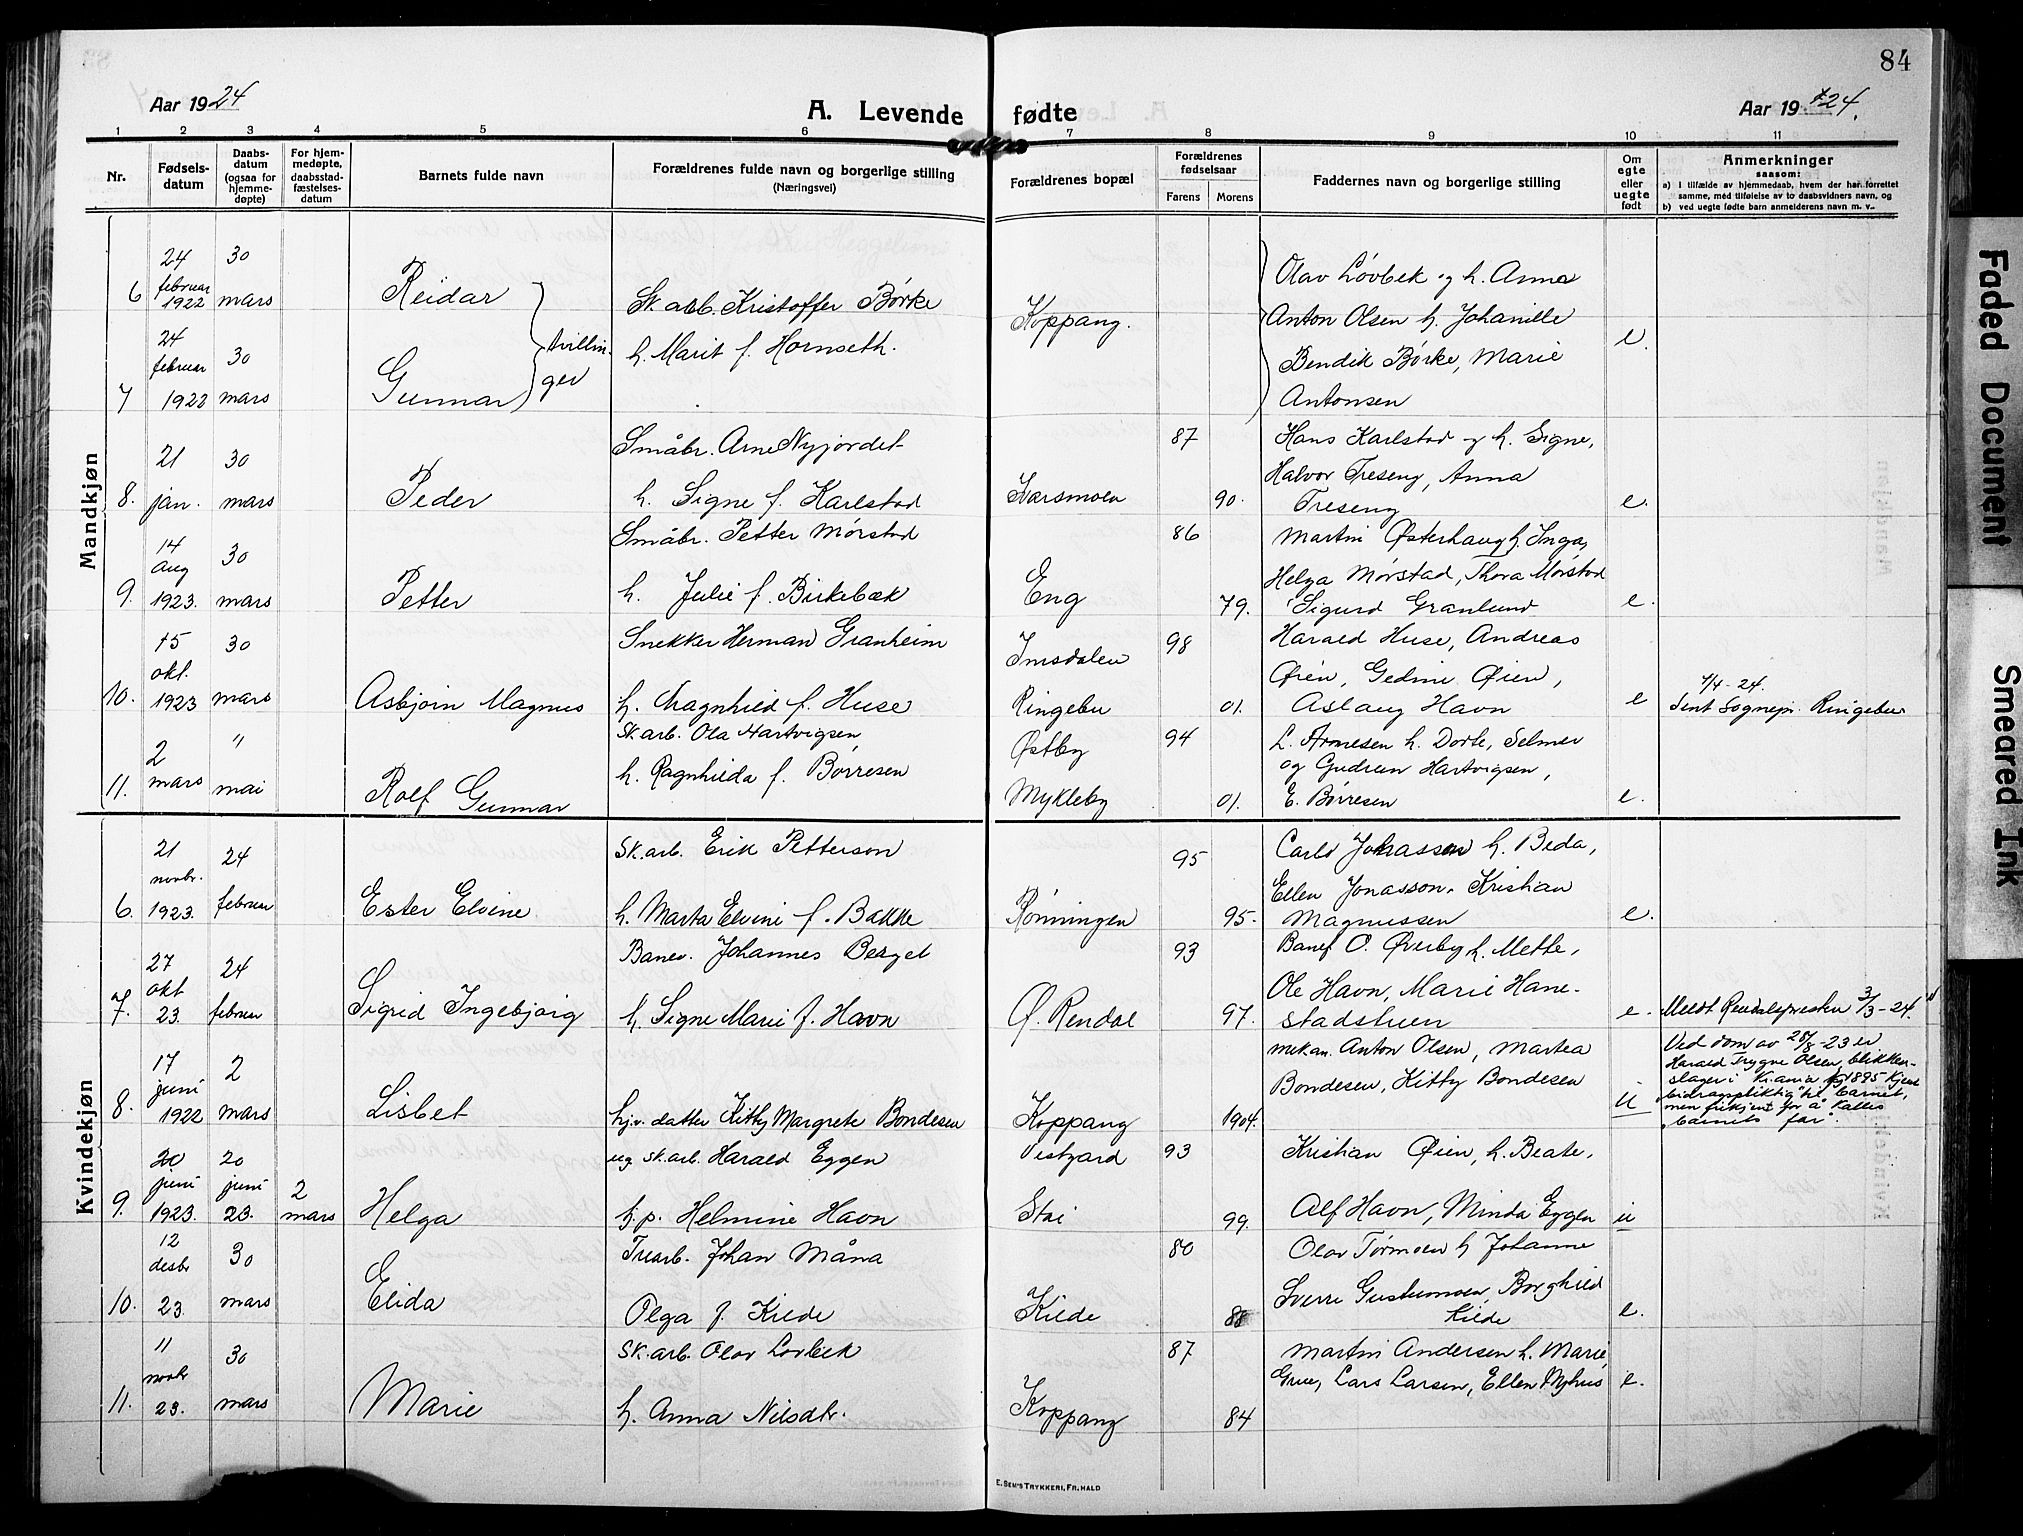 84
Aar 1924
A. Levende fødte
Aar 1924.
1 2 3 4 5 6 7 8 9 10 11
Nr.
Fødsels-
datum
Daabs-
datum
(ogsaa for
hjemme-
døpte)
For hjem-
medøpte,
daabsstad-
fæstelses-
datum
Barnets fulde navn
Forældrenes fulde navn og borgerlige stilling
(Næringsvei)
Forældrenes bopæl
Forældrenes
fødselsaar
Farens Morens
Faddernes navn og borgerlige stilling
Om
egte
eller
uegte
født
Anmerkninger
saasom:
a) I tilfælde av hjemmedaab, hvem der har forrettet
samme, med tilføielse av to daabsvidners navn, og
b) ved uegte fødte barn anmelderens navn m. v.
Mandkjøn
6 24 februar 1922 30 mars Reidar
Sk.arb. Kristoffer Børke
h. Marit f. Hornseth.
Koppang.
Olav Lövbek og h. Anna
Anton Olsen h. Johanille
Bendik Børke, Marie
Antonsen
e.
7 24 februar 1922 30 mars Gunnar
tvillin-
ger
8. 21 jan. 30 mars Peder
Småbr. Arne Nyjordet
h. Signe f. Karlstad
87 90.
Hans Karlstad og h. Signe,
Halvor Treseng, Anna
Treseng
e.
9. 14 aug 1923. 30 mars Petter
Småbr. Petter Mørstad
h. Julie f. Birkebæk
Eng
86 79.
Martin Østerhaug h. Inga,
Helga Mørstad, Thora Mørstad
Sigurd Granlund
e.
10. 15 okt. 1923 30 mars Asbjørn Magnus
Snekker Herman Granheim
h. Magnhild f. Huse
Imsdalen
Ringebu
98 01.
Harald Huse, Andreas
Øien, Gedine Øien,
Aslaug Havn
e
1/4-24.
Sent Sognepr. Ringebu
11. 2 mars " mai Rolf Gunnar
Sk.arb. Ola Hartvigsen
h. Ragnhilda f. Børresen
Østby
Mykleby
94 01.
L. Arnesen h. Dorte, Selmer
og Gudrun Hartvigsen,
E. Børresen
e.
Kvindekjøn
6. 21 novbr. 1923. 24 februar Ester Elvine
Sk.arb. Erik Petterson
h. Marta Elvine f. Bakke
Rønningen
95 95.
Carl Jonasson h. Beda,
Ellen Jonasson, Kristian
Magnussen
e.
7. 27 okt 23. 24 februar Sigrid Ingebjørg
Banev. Johannes Berget
h. Signe Marie f. Havn
Ø. Rendal
93 97.
Banef. O. Øverby h. Mette,
Ole Havn, Marie Hane-
stadstuen
e.
Meldt Rendalspresten 3/3-24.
8. 17 juni 1922 2 mars Lisbet
hj.v. datter Kitty Margrete Bondesen
Koppang
1904.
Mekan. Anton Olsen, Martea
Bondesen, Kitty Bondesen
u
Ved dom av 28/8-23 er
Harald Trygve Olsen, blikken-
slager i Kr.ania f. 1895 kjent
"bidragspliktig" til barnet,
men frikjent for å kalles
"barnets far".
9. 20 juni 1923. 20 juni 23. 2 mars Helga
ug. sk.arb. Harald Eggen
hj.p. Helmine Havn
Vestgard
Stai
93 99.
Kristian Øien, h. Beate,
Alf Havn, Minda Eggen
u
10. 12 desbr 23. 30 mars Elida
Johan Måna
Olga f. Kilde
Kilde
80 88
Olav Tørmoen h Johanne
Sverre Gustumoen, Borghild
Kilde
e.
11. 11 novbr 23. 30 mars Marie
Sk.arb. Olav Lovbek
h. Anna Nilsdtr.
Koppang
87 84
Martin Andersen h. Marie
Grue, Lars Larsen, Ellen Myhus
e.
E. SEM'S TRYKKERI, FR.HALD
Faded Document
Smeared Ink